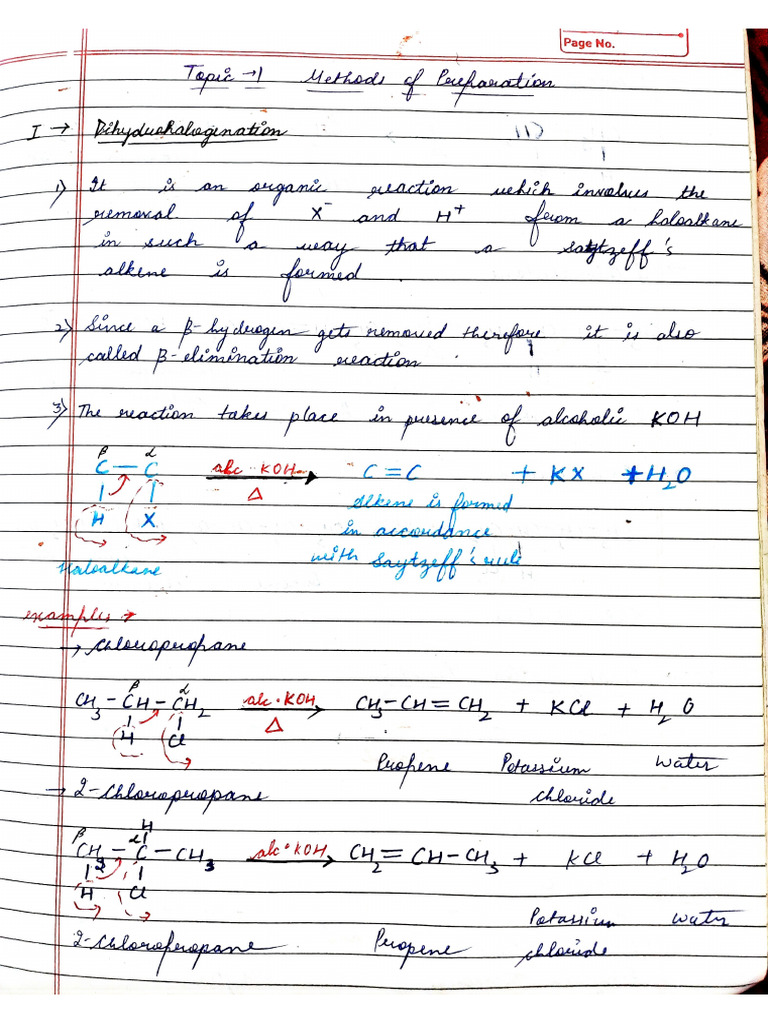 Page No.
Topic → 1 Methods of Preparation
I → Dihydrohalogenation
1) It is an organic reaction which involves the
removal of X⁻ and H⁺ from a haloalkane
in such a way that a Saytzeff's
alkene is formed.
2) Since a β-hydrogen gets removed therefore it is also
called β-elimination reaction
3) The reaction takes place in presence of alcoholic KOH
β α
C – C alc. KOH → C = C + KX + H₂O
Δ Alkene is formed
H X in accordance
with Saytzeff's rule
Haloalkane
examples →
→ Chloropropane
β α
CH₃ – CH – CH₂ alc. KOH → CH₃ – CH = CH₂ + KCl + H₂O
H Cl Δ
Propene Potassium Water
→ 2-Chloropropane chloride
H
β α
CH₂ – C – CH₃ alc. KOH → CH₂ = CH – CH₃ + KCl + H₂O
H Cl
Potassium water
2-Chloropropane Propene chloride